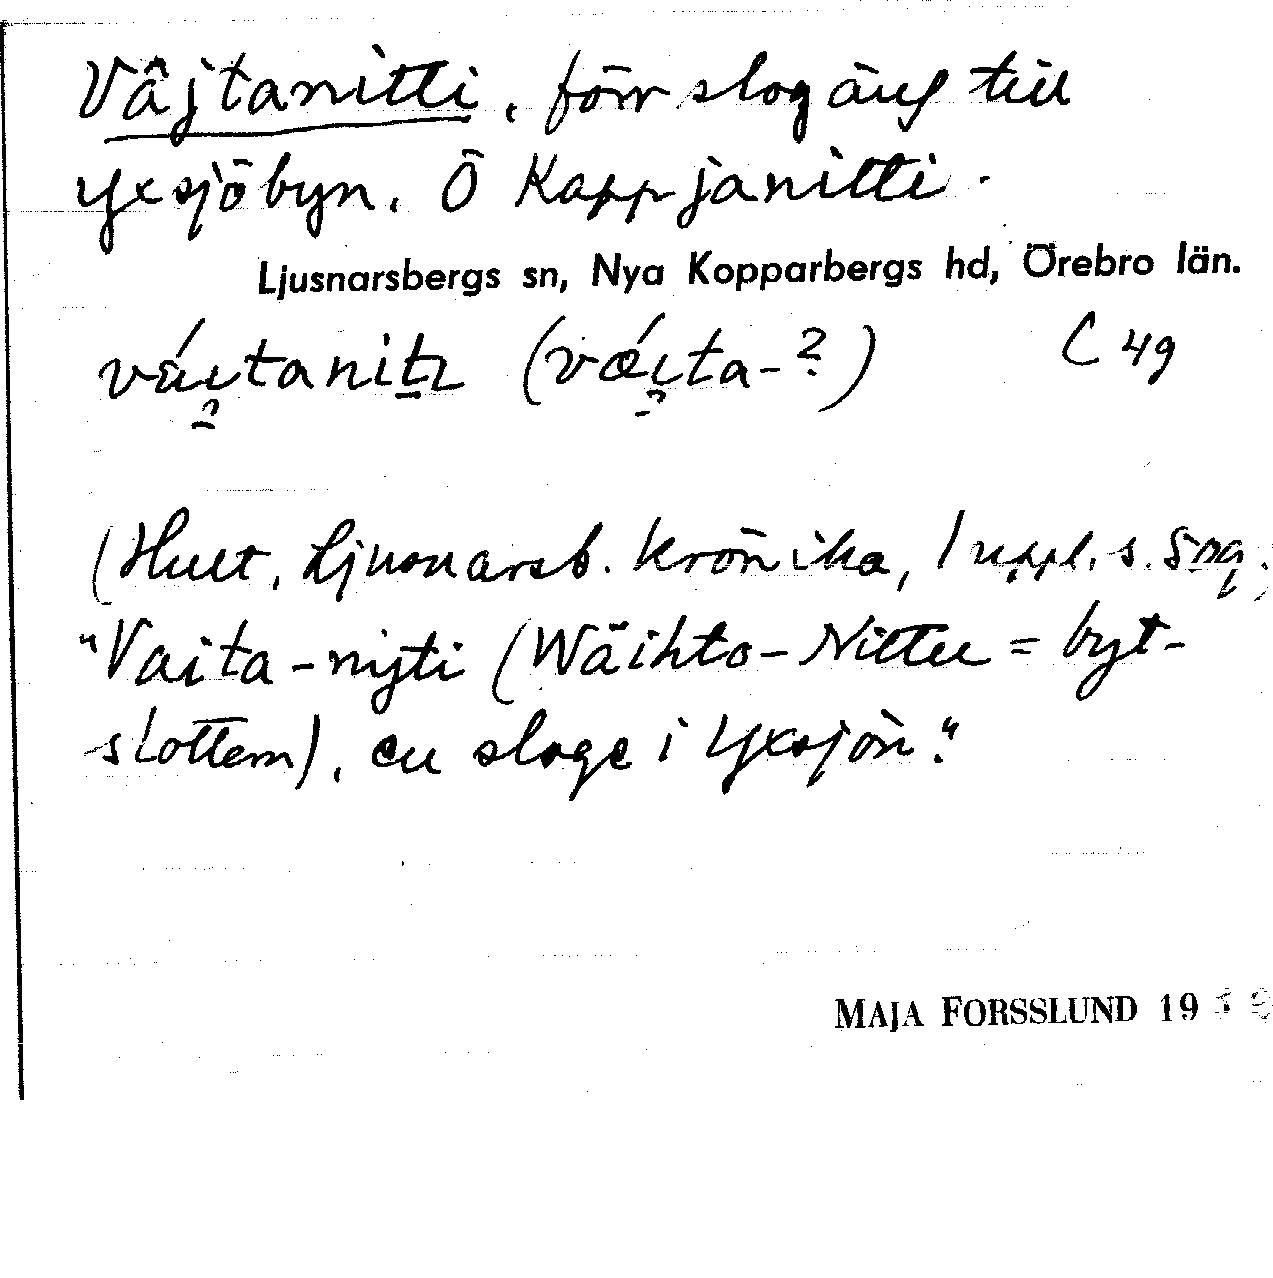 Våjtanitti, förr slogäng till
Yxsjöbyn. Ö Kappjanitti.
Ljusnarsbergs sn, Nya Kopparbergs hd, Örebro län.
(
C 49
(Hult, Ljusnarsb. krönika, 1 uppl. s. 509,
"Vaita-nijti (Wäihto-Nittu = byt-
slotten), en sloge i Yxsjön."
MAJA FORSSLUND 19